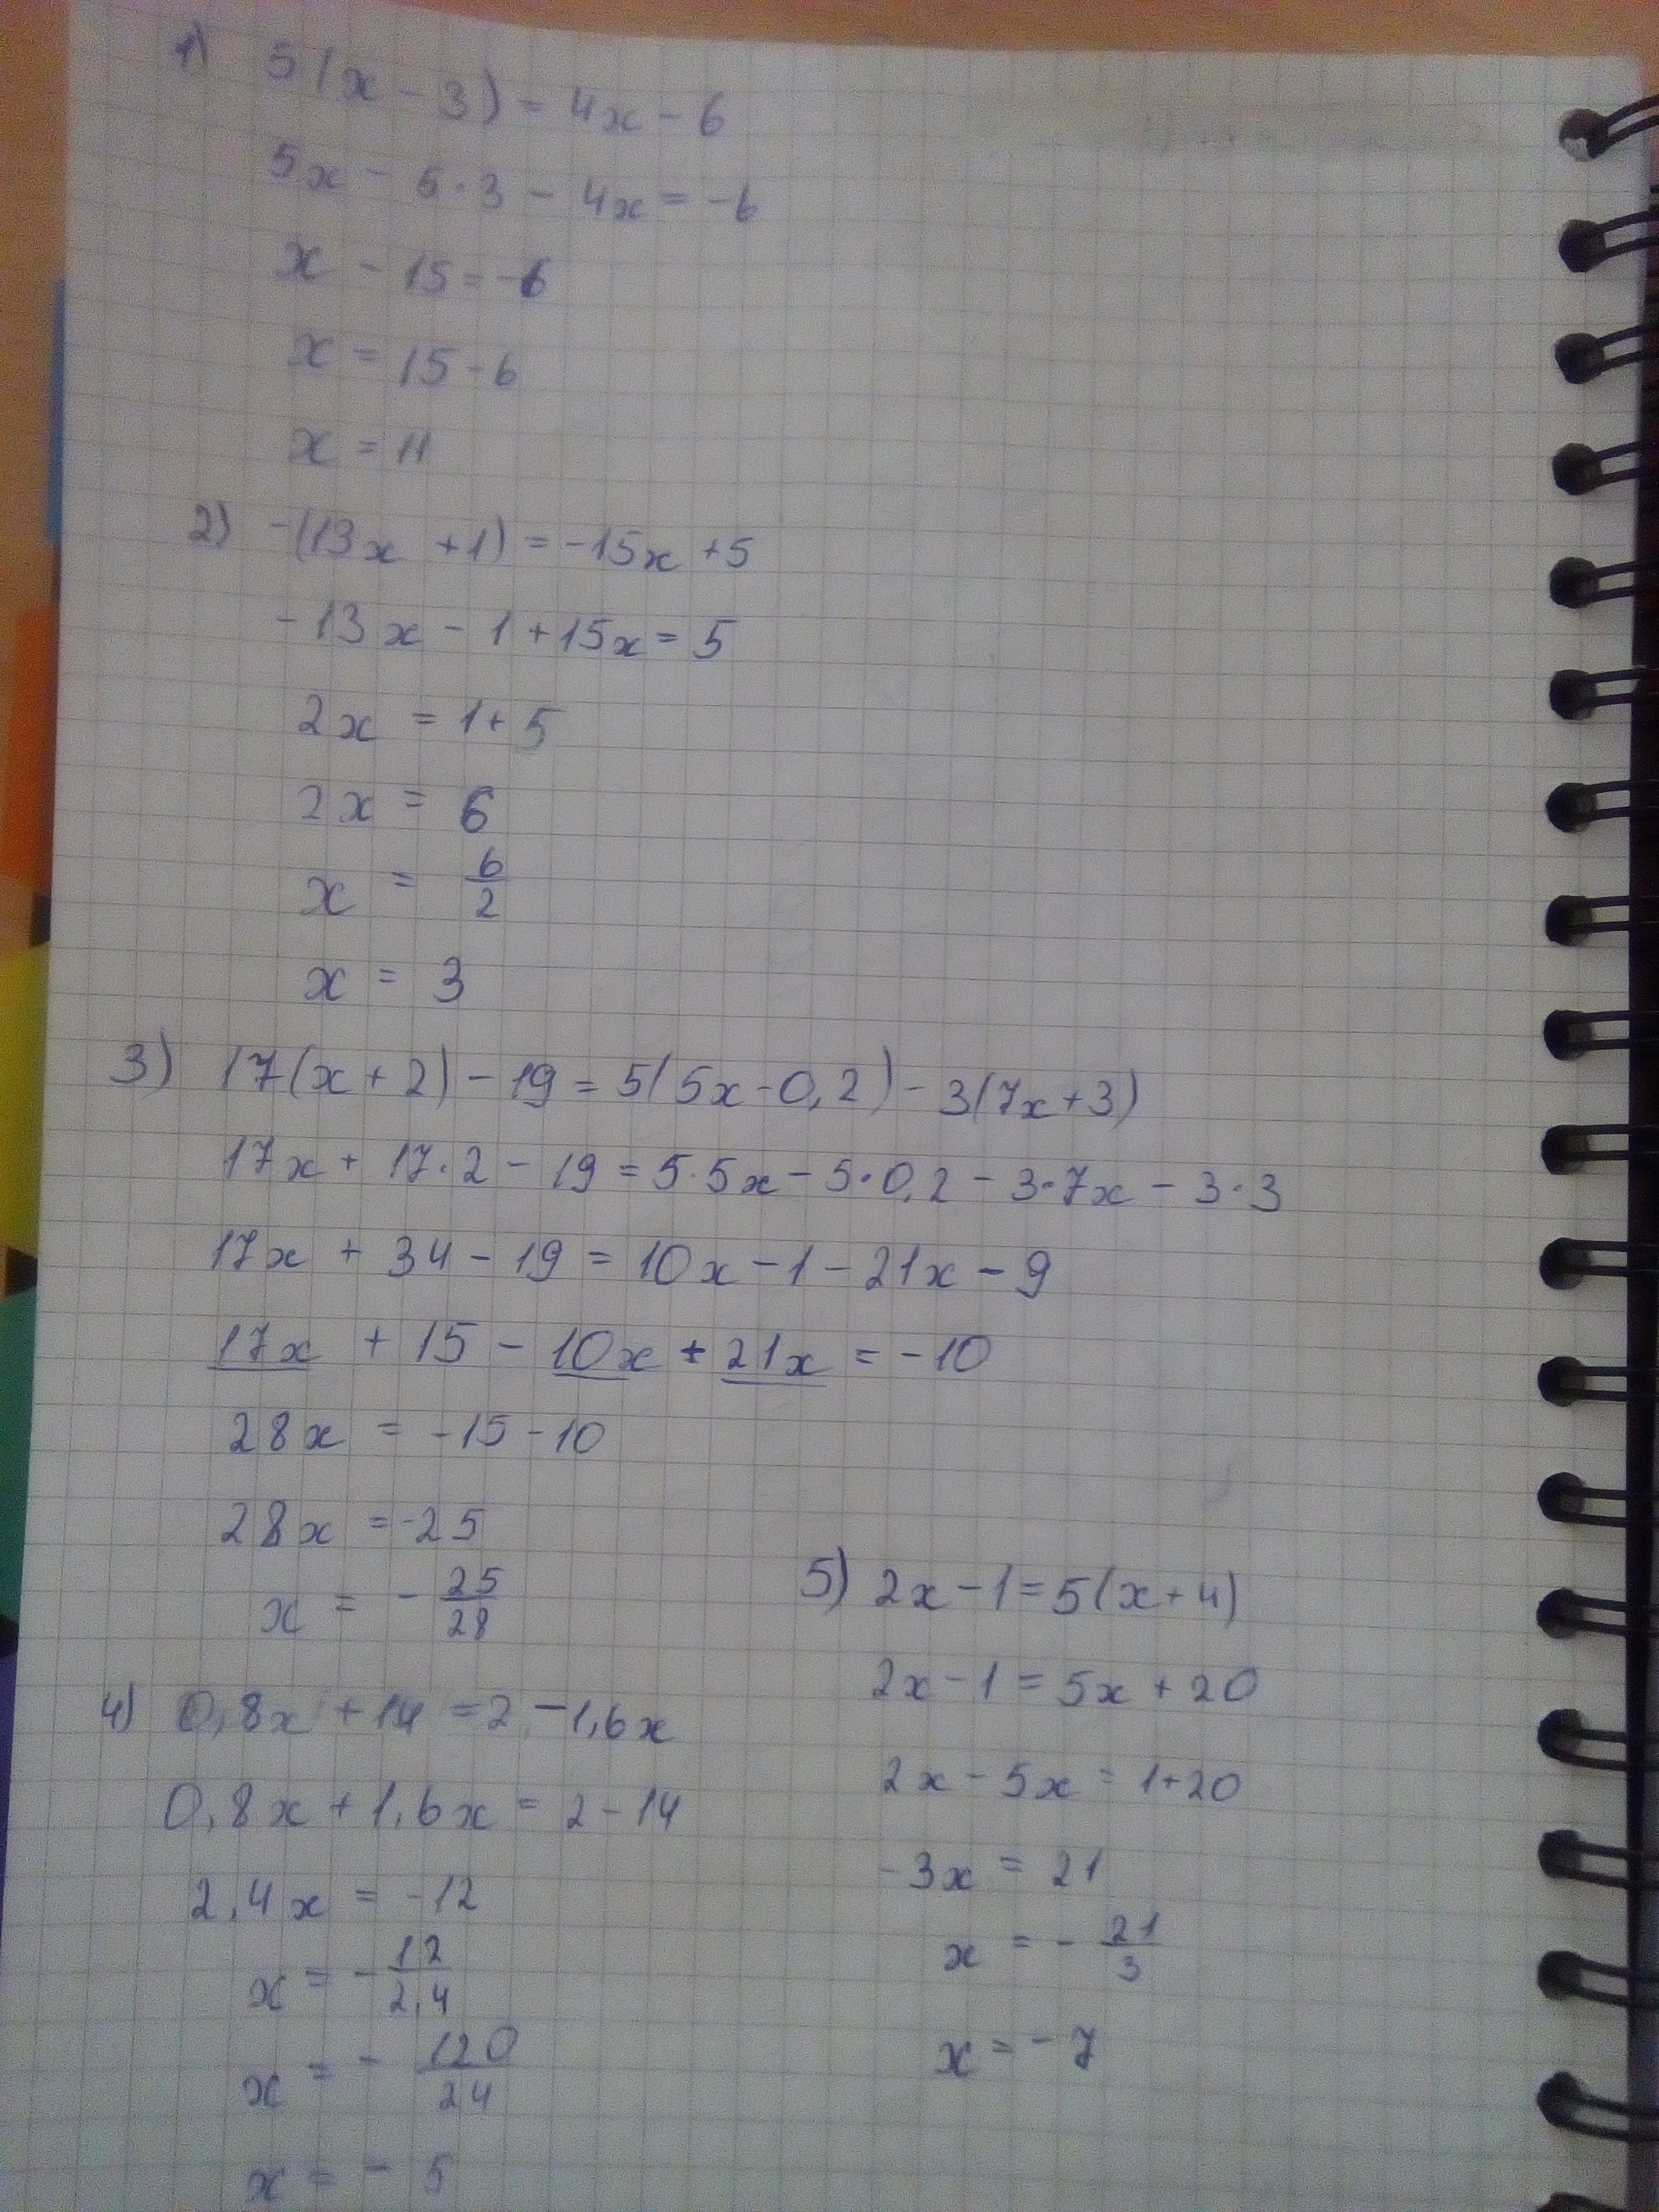 1) 5(x - 3) = 4x - 6
5x - 5·3 - 4x = -6
x - 15 = -6
x = 15 - 6
x = 11
2) -(13x + 1) = -15x + 5
-13x - 1 + 15x = 5
2x = 1 + 5
2x = 6
x = 6/2
x = 3
3) 17(x + 2) - 19 = 5(5x - 0,2) - 3(7x + 3)
17x + 17·2 - 19 = 5·5x - 5·0,2 - 3·7x - 3·3
17x + 34 - 19 = 10x - 1 - 21x - 9
17x + 15 - 10x + 21x = -10
28x = -15 - 10
28x = -25
x = - 25/28
4) 0,8x + 14 = 2 - 1,6x
0,8x + 1,6x = 2 - 14
2,4x = -12
x = - 12/2,4
x = - 120/24
x = - 5
5) 2x - 1 = 5(x + 4)
2x - 1 = 5x + 20
2x - 5x = 1 + 20
-3x = 21
x = - 21/3
x = - 7